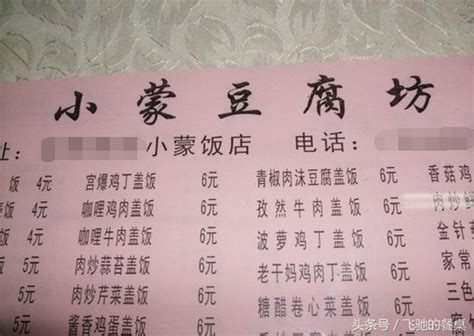 小蒙豆腐坊
址: 小蒙饭店 电话:
饭 4元 宫爆鸡丁盖饭 6元 青椒肉沫豆腐盖饭 香菇鸡
4元 咖喱鸡肉盖饭 6元 孜然牛肉盖饭 6元 肉炒
4元 咖哩牛肉盖饭 6元 菠萝鸡丁盖饭 6元 金针
5元 肉炒蒜苔盖饭 6元 老干妈鸡肉丁盖饭 家常
5元 肉炒芹菜盖饭 6元 糖醋卷心菜盖饭
5元 酱香鸡蛋盖饭 6元
头条号 / 飞驰的餐桌